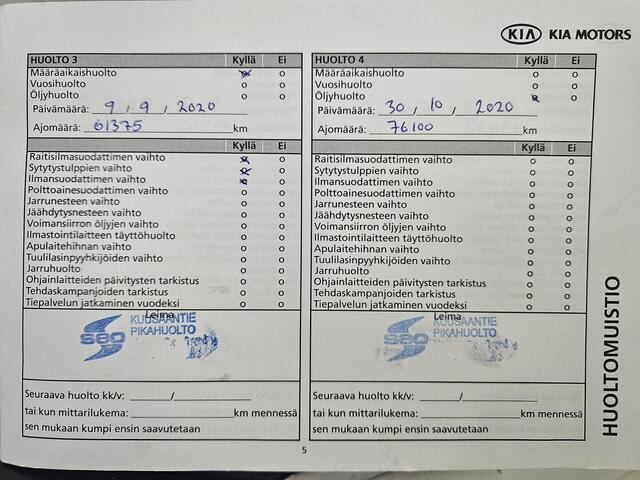 KIA KIA MOTORS
HUOLTO 3 Kyllä Ei
Määräaikaishuolto o o
Vuosihuolto o o
Öljyhuolto o o
Päivämäärä: 9 / 9 / 2020
Ajomäärä: 61375 km
Kyllä Ei
Raitisilmasuodattimen vaihto o o
Sytytystulppien vaihto o o
Ilmansuodattimen vaihto o o
Polttoainesuodattimen vaihto o o
Jarrunesteen vaihto o o
Jäähdytysnesteen vaihto o o
Voimansiirron öljyjen vaihto o o
Ilmastointilaitteen täyttöhuolto o o
Apulaitehihnan vaihto o o
Tuulilasinpyyhkijöiden vaihto o o
Jarruhuolto o o
Ohjainlaitteiden päivitysten tarkistus o o
Tehdaskampanjoiden tarkistus o o
Tiepalvelun jatkaminen vuodeksi o o
Leima
KUUSAANTIE
PIKAHUOLTO
seo
Seuraava huolto kk/v: /
tai kun mittarilukema: km mennessä
sen mukaan kumpi ensin saavutetaan
HUOLTO 4 Kyllä Ei
Määräaikaishuolto o o
Vuosihuolto o o
Öljyhuolto o o
Päivämäärä: 30 / 10 / 2020
Ajomäärä: 76100 km
Kyllä Ei
Raitisilmasuodattimen vaihto o o
Sytytystulppien vaihto o o
Ilmansuodattimen vaihto o o
Polttoainesuodattimen vaihto o o
Jarrunesteen vaihto o o
Jäähdytysnesteen vaihto o o
Voimansiirron öljyjen vaihto o o
Ilmastointilaitteen täyttöhuolto o o
Apulaitehihnan vaihto o o
Tuulilasinpyyhkijöiden vaihto o o
Jarruhuolto o o
Ohjainlaitteiden päivitysten tarkistus o o
Tehdaskampanjoiden tarkistus o o
Tiepalvelun jatkaminen vuodeksi o o
Leima
KUUSAANTIE
PIKAHUOLTO
seo
Seuraava huolto kk/v: /
tai kun mittarilukema: km mennessä
sen mukaan kumpi ensin saavutetaan
HUOLTOMUISTIO
5